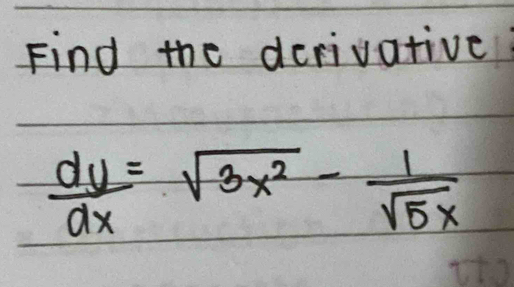 Find the derivative:
dy/dx = √(3x²) - 1/√(5x)